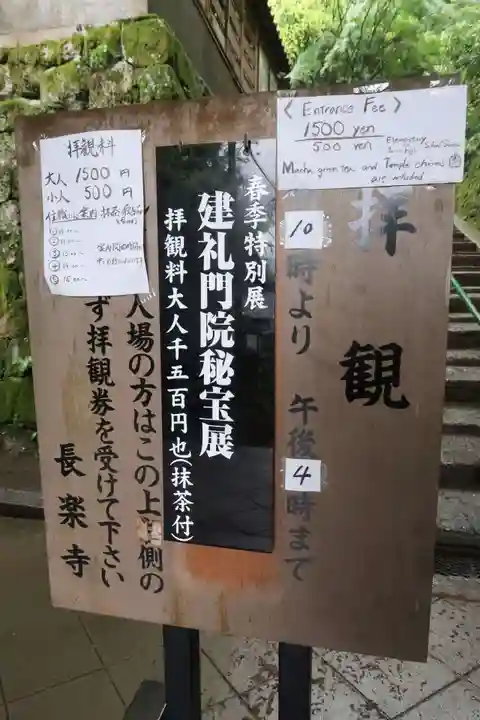 拝観
10時より 午後4時まで
〈 Entrance Fee 〉
1500 yen
500 yen
Elementary
Macha green tea and Temple charms
are included
春季特別展
建礼門院秘宝展
拝観料大人千五百円也(抹茶付)
拝観料
大人 1500円
小人 500円
入場の方はこの上 側の
ず拝観券を受けて下さい
長楽寺